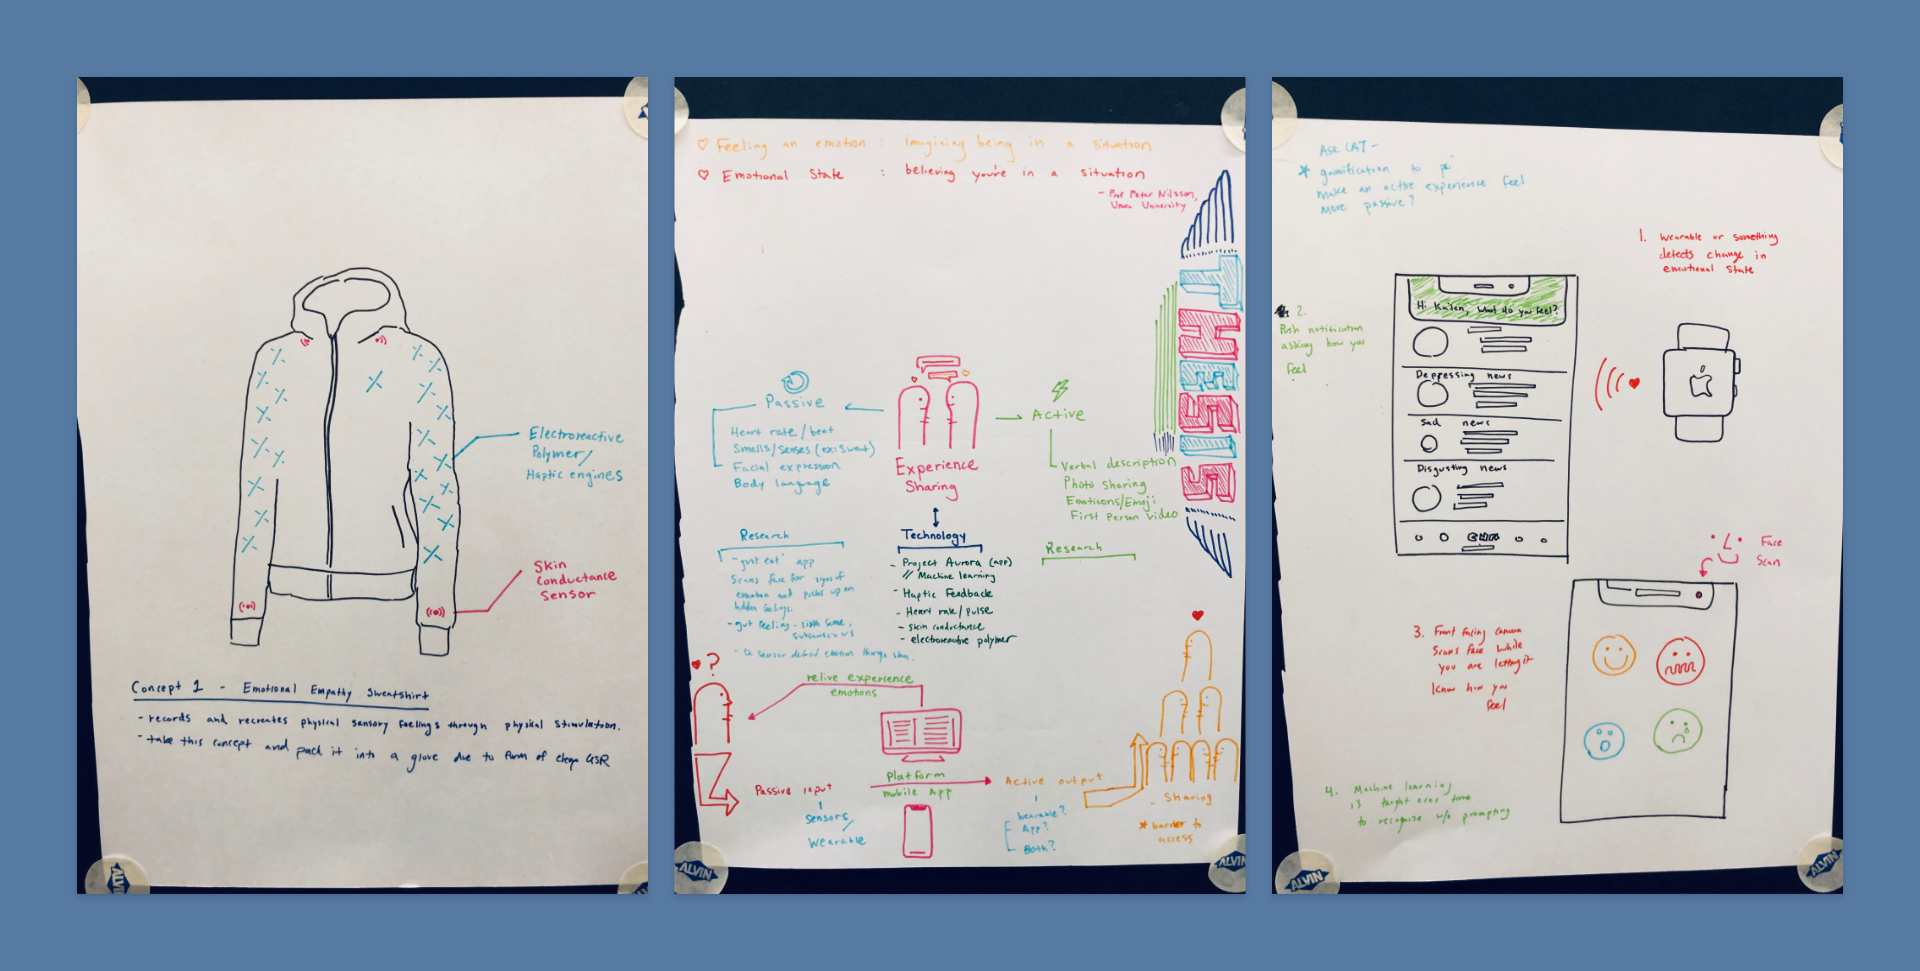 Electroreactive
Polymer/
Haptic engines
Skin
Conductance
Sensor
Concept 1 - Emotional Empathy Sweatshirt
- records and recreates physical sensory feelings through physical stimulation.
- take this concept and pack it into a glove due to form of GSR
ALVIN
Feeling an emotion : imagining being in a situation
Emotional State : believing you're in a situation
- Prof Peter Nilsson,
Umea University
THESIS
Passive
Heart rate/beat
Smells/senses (ex: Sweat)
Facial expression
Body language
Experience
Sharing
Active
Verbal description
Photo sharing
Emoticons/Emoji
First Person Video
Research
- "just eat" app
Scans face for signs of
emotion and picks up on
hidden feelings.
- gut feeling - sixth sense,
subconscious
- sensor detect emotion through skin.
Technology
- Project Aurora (app)
// Machine learning
- Haptic Feedback
- Heart rate/pulse
- skin conductance
- electroreactive polymer
Research
?
relive experience
emotions
Passive input
Sensors/
Wearable
Platform
mobile App
Active output
Wearable?
App?
Both?
- Sharing
* barrier to
access
ALVIN
ALVIN
Ask LAT -
* gamification to
make an active experience feel
more passive?
1. Wearable or something
detects change in
emotional state
2.
Push notification
asking how you
feel
Hi Kailen, what do you feel?
Depressing news
Sad news
Disgusting news
Face
Scan
3. Front facing camera
Scans face while
you are letting it
know how you
feel
4. Machine learning
is taught over time
to recognize w/o prompting
ALVIN
ALVIN